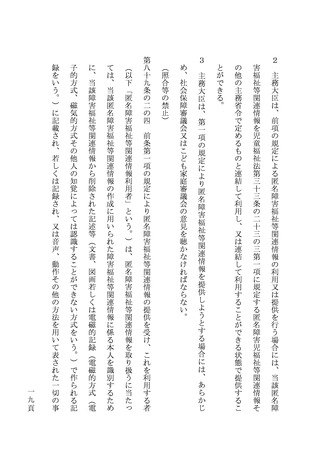 ２　主務大臣は、前項の規定による匿名障害福祉等関連情報の利用又は提供を行う場合には、当該匿名障
害福祉等関連情報を児童福祉法第三十三条の二十三の三第一項に規定する匿名障害児福祉等関連情報そ
の他の主務省令で定めるものと連結して利用し、又は連結して利用することができる状態で提供するこ
とができる。
３　主務大臣は、第一項の規定により匿名障害福祉等関連情報を提供しようとする場合には、あらかじ
め、社会保障審議会又はこども家庭審議会の意見を聴かなければならない。
（照合等の禁止）
第八十九条の二の四　前条第一項の規定により匿名障害福祉等関連情報の提供を受け、これを利用する者
（以下「匿名障害福祉等関連情報利用者」という。）は、匿名障害福祉等関連情報を取り扱うに当たっ
ては、当該匿名障害福祉等関連情報の作成に用いられた障害福祉等関連情報に係る本人を識別するため
に、当該障害福祉等関連情報から削除された記述等（文書、図画若しくは電磁的記録（電磁的方式（電
子的方式、磁気的方式その他人の知覚によっては認識することができない方式をいう。）で作られる記
録をいう。）に記載され、若しくは記録され、又は音声、動作その他の方法を用いて表された一切の事
一九頁